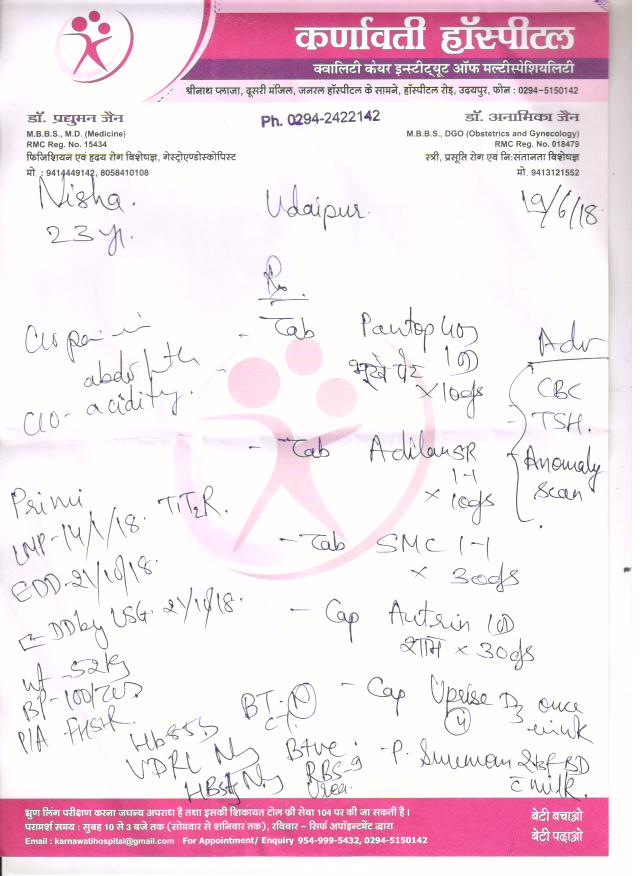 कर्णावती हॉस्पीटल
क्वालिटी केयर इन्स्टीट्यूट ऑफ मल्टीस्पेशियलिटी
श्रीनाथ प्लाजा, दूसरी मंजिल, जनरल हॉस्पीटल के सामने, हॉस्पीटल रोड़, उदयपुर, फोन : 0294-5150142
Ph. 0294-2422142
डॉ. प्रद्युमन जैन
M.B.B.S., M.D. (Medicine)
RMC Reg. No. 15434
फिजिशियन एवं हृदय रोग विशेषज्ञ, गेस्ट्रोएण्डोस्कोपिस्ट
मो. : 9414449142, 8058410108
डॉ. अनामिका जैन
M.B.B.S., DGO (Obstetrics and Gynecology)
RMC Reg. No. 018479
स्त्री, प्रसूति रोग एवं नि:संतानता विशेषज्ञ
मो. 9413121552
Nisha. Udaipur. 19/6/18
23 yr.
Rx
C/o pain in
abdo
C/o - acidity.
- Tab Pantop 40
भूखे पेट 1OD
x 10 dys
- Tab Adilan SR
1-1
x 10 dys
- Tab SMC 1-1
x 30 dys
- Cap Autrin 1OD
शाम x 30 dys
- Cap Uprise D3 once
(4) a wk
- P. BD
c milk.
Adv
CBC
TSH.
Anomaly
Scan
Primi T1T2R.
LMP-14/1/18.
EDD-21/10/18.
EDD by USG. 21/10/18.
wt - 52kg
BP-100/70
P/A FHSR.
BT-
CT- N
VDRL N
HBsAg N
B+ve
RBS-
Urea
भ्रूण लिंग परीक्षण करना जघन्य अपराध है तथा इसकी शिकायत टोल फ्री सेवा 104 पर की जा सकती है।
परामर्श समय : सुबह 10 से 3 बजे तक (सोमवार से शनिवार तक), रविवार - सिर्फ अपॉइन्टमेंट द्वारा
Email : karnawatihospital@gmail.com For Appointment/ Enquiry 954-999-5432, 0294-5150142
बेटी बचाओ
बेटी पढ़ाओ